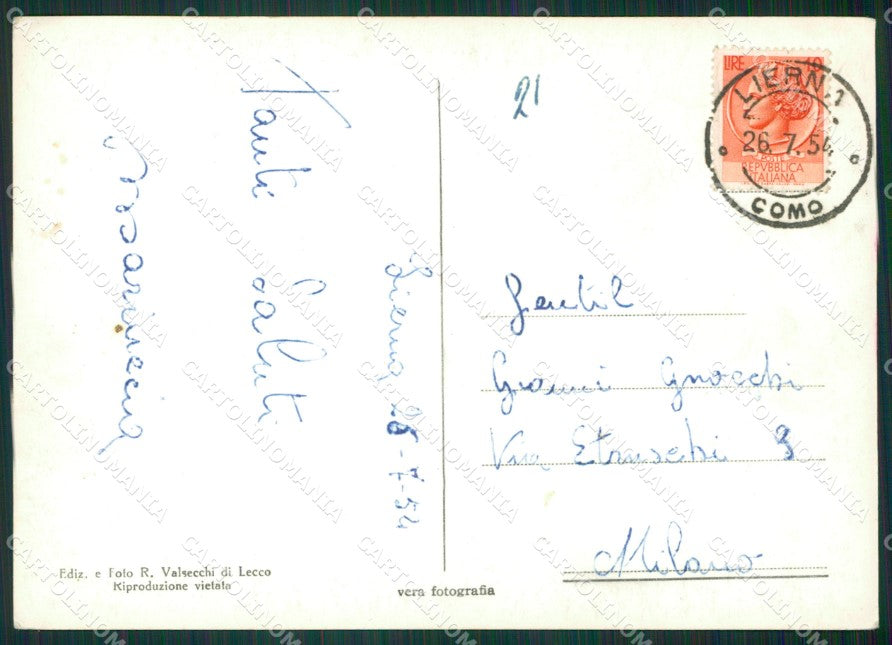 21
LIRE 10
POSTE
REPVBBLICA
ITALIANA
LIERNA
26.7.54
COMO
Lierna, 25-7-54
Tanti saluti
Gentil
Gianni Gnocchi
Via Etruschi 3
Milano
Ediz. e Foto R. Valsecchi di Lecco
Riproduzione vietata
vera fotografia
CARTOLINOMANIA